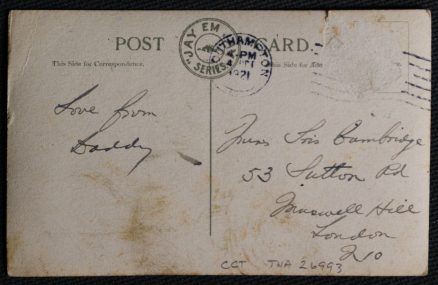 POST CARD.
"JAY EM"
SERIES
SOUTHAMPTON
PM
1921
This Side for Correspondence.
This Side for
Love from
Daddy
Miss Lois Cambridge
53 Sutton Rd
Muswell Hill
London
N10
CCT TNA 26993